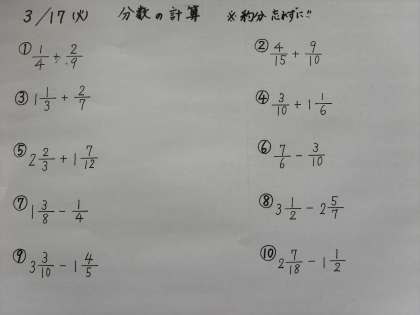 3/17(火) 分数の計算 ※約分忘れずに!!
① 1/4 + 2/9 ② 4/15 + 9/10
③ 1 1/3 + 2/7 ④ 3/10 + 1 1/6
⑤ 2 2/3 + 1 7/12 ⑥ 7/6 - 3/10
⑦ 1 3/8 - 1/4 ⑧ 3 1/2 - 2 5/7
⑨ 3 3/10 - 1 4/5 ⑩ 2 7/18 - 1 1/2